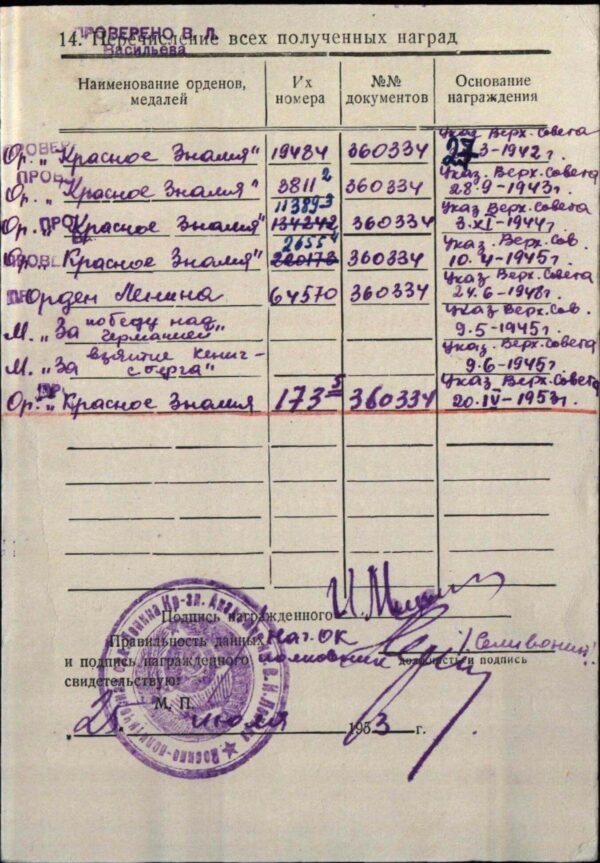 ПРОВЕРЕНО В. Л.
Васильева
14. Перечисление всех полученных наград
Наименование орденов, медалей
Их номера
№№ документов
Основание награждения
Ор. „Красное Знамя" 19484 360334 Указ Верх. Совета 27 3-1942г.
Ор. „Красное Знамя" 3811² 360334 Указ. Верх. Совета 28.9-1943г.
Ор. „Красное Знамя" 11389-3 134242 360334 Указ. Верх. Совета 3.XI-1944г
Ор. „Красное Знамя" 2655⁴ 360334 Указ. Верх. Сов. 10.4-1945г.
Орден Ленина 64570 360334 Указ Верх. Совета 24.6-1948г.
М. „За победу над Германией" Указ Верх. Сов. 9.5-1945г.
М. „За взятие Кениг-сберга" Указ. Верх. Сов. 9.6-1945г
Ор. „Красное Знамя 173⁵ 360334 Указ. Верх. Совета 20.IV-1953г.
Подпись награжденного
Правильность данных Нач. ОК
и подпись награжденного полковник /Селивон
должность и подпись
свидетельствую:
М. П.
„25" июля 1953 г.